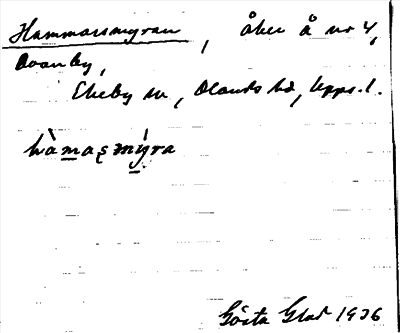 Hammarsmyran, åker å nr 4,
Ovanby,
Ekeby sn, Olands hd, Upps. l.
hàmaʂmýra
Gösta Glad 1936